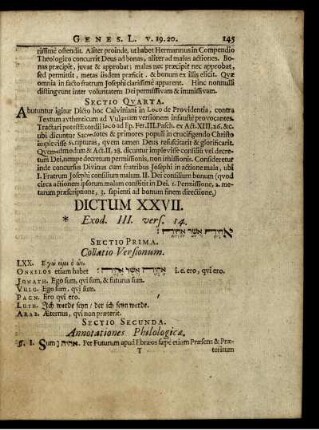 GENES. L. v. 19. 20. 145
rissimè ostendit. Aliter proinde, ut habet Hermannus in Compendio
Theologico concurrit Deus ad bonas, aliter ad malas actiones. Bo-
nas præcipit, juvat & approbat; malas nec præcipit nec approbat,
sed permittit, metas iisdem præficit, & bonum ex illis elicit. Quæ
omnia in facto fratrum Josephi clarissimè apparent. Hinc nonnulli
distingunt inter voluntatem Dei permissivam & immissivam.
SECTIO QUARTA.
Abutuntur igitur Dicto hoc Calviniani in Loco de Providentia, contra
Textum authenticum ad Vulgatam versionem infaustè provocantes.
Tractari potest Exordii loco ad Ep. Fer. III. Pasch. ex Act. XIII. 26. &c.
ubi dicuntur Sacerdotes & primores populi in crucifigendo Christo
implevisse scripturas, quem tamen Deus resuscitavit & glorificavit.
Quemadmodum & Act. II. 28. dicuntur implevisse consilii vel decretum
Dei, nempe decretum permissionis, non inhisionis. Consideretur
inde concursus Divinus cum fratribus Josephi in actione mala; ubi
I. Fratrum Josephi consilium malum. II. Dei consilium bonum (quod
circa actionem ipsorum malam consistit in Dei 1. Permissione, 2. me-
tarum præscriptione, 3. sapienti ad bonum finem directione.)
DICTUM XXVII.
* Exod. III. vers. 14.
אהיה אשר אהיה:
SECTIO PRIMA.
Collatio Versionum.
LXX. Ἐγώ εἰμι ὁ ὤν.
ONKELOS etiam habet אהיה אשר אהיה: I. e. ero, qui ero.
JONATH. Ego sum, qui sum, & futurus sum.
VULG. Ego sum, qui sum.
PAGN. Ero qui ero.
LUTH. Ich werde seyn / der ich seyn werde.
ARAB. Æternus, qui non præterit.
SECTIO SECUNDA.
Annotationes Philologicæ.
§. I. Sum אהיה. Per Futurum apud Ebræos sæpè etiam Præsens & Præ-
T teritum